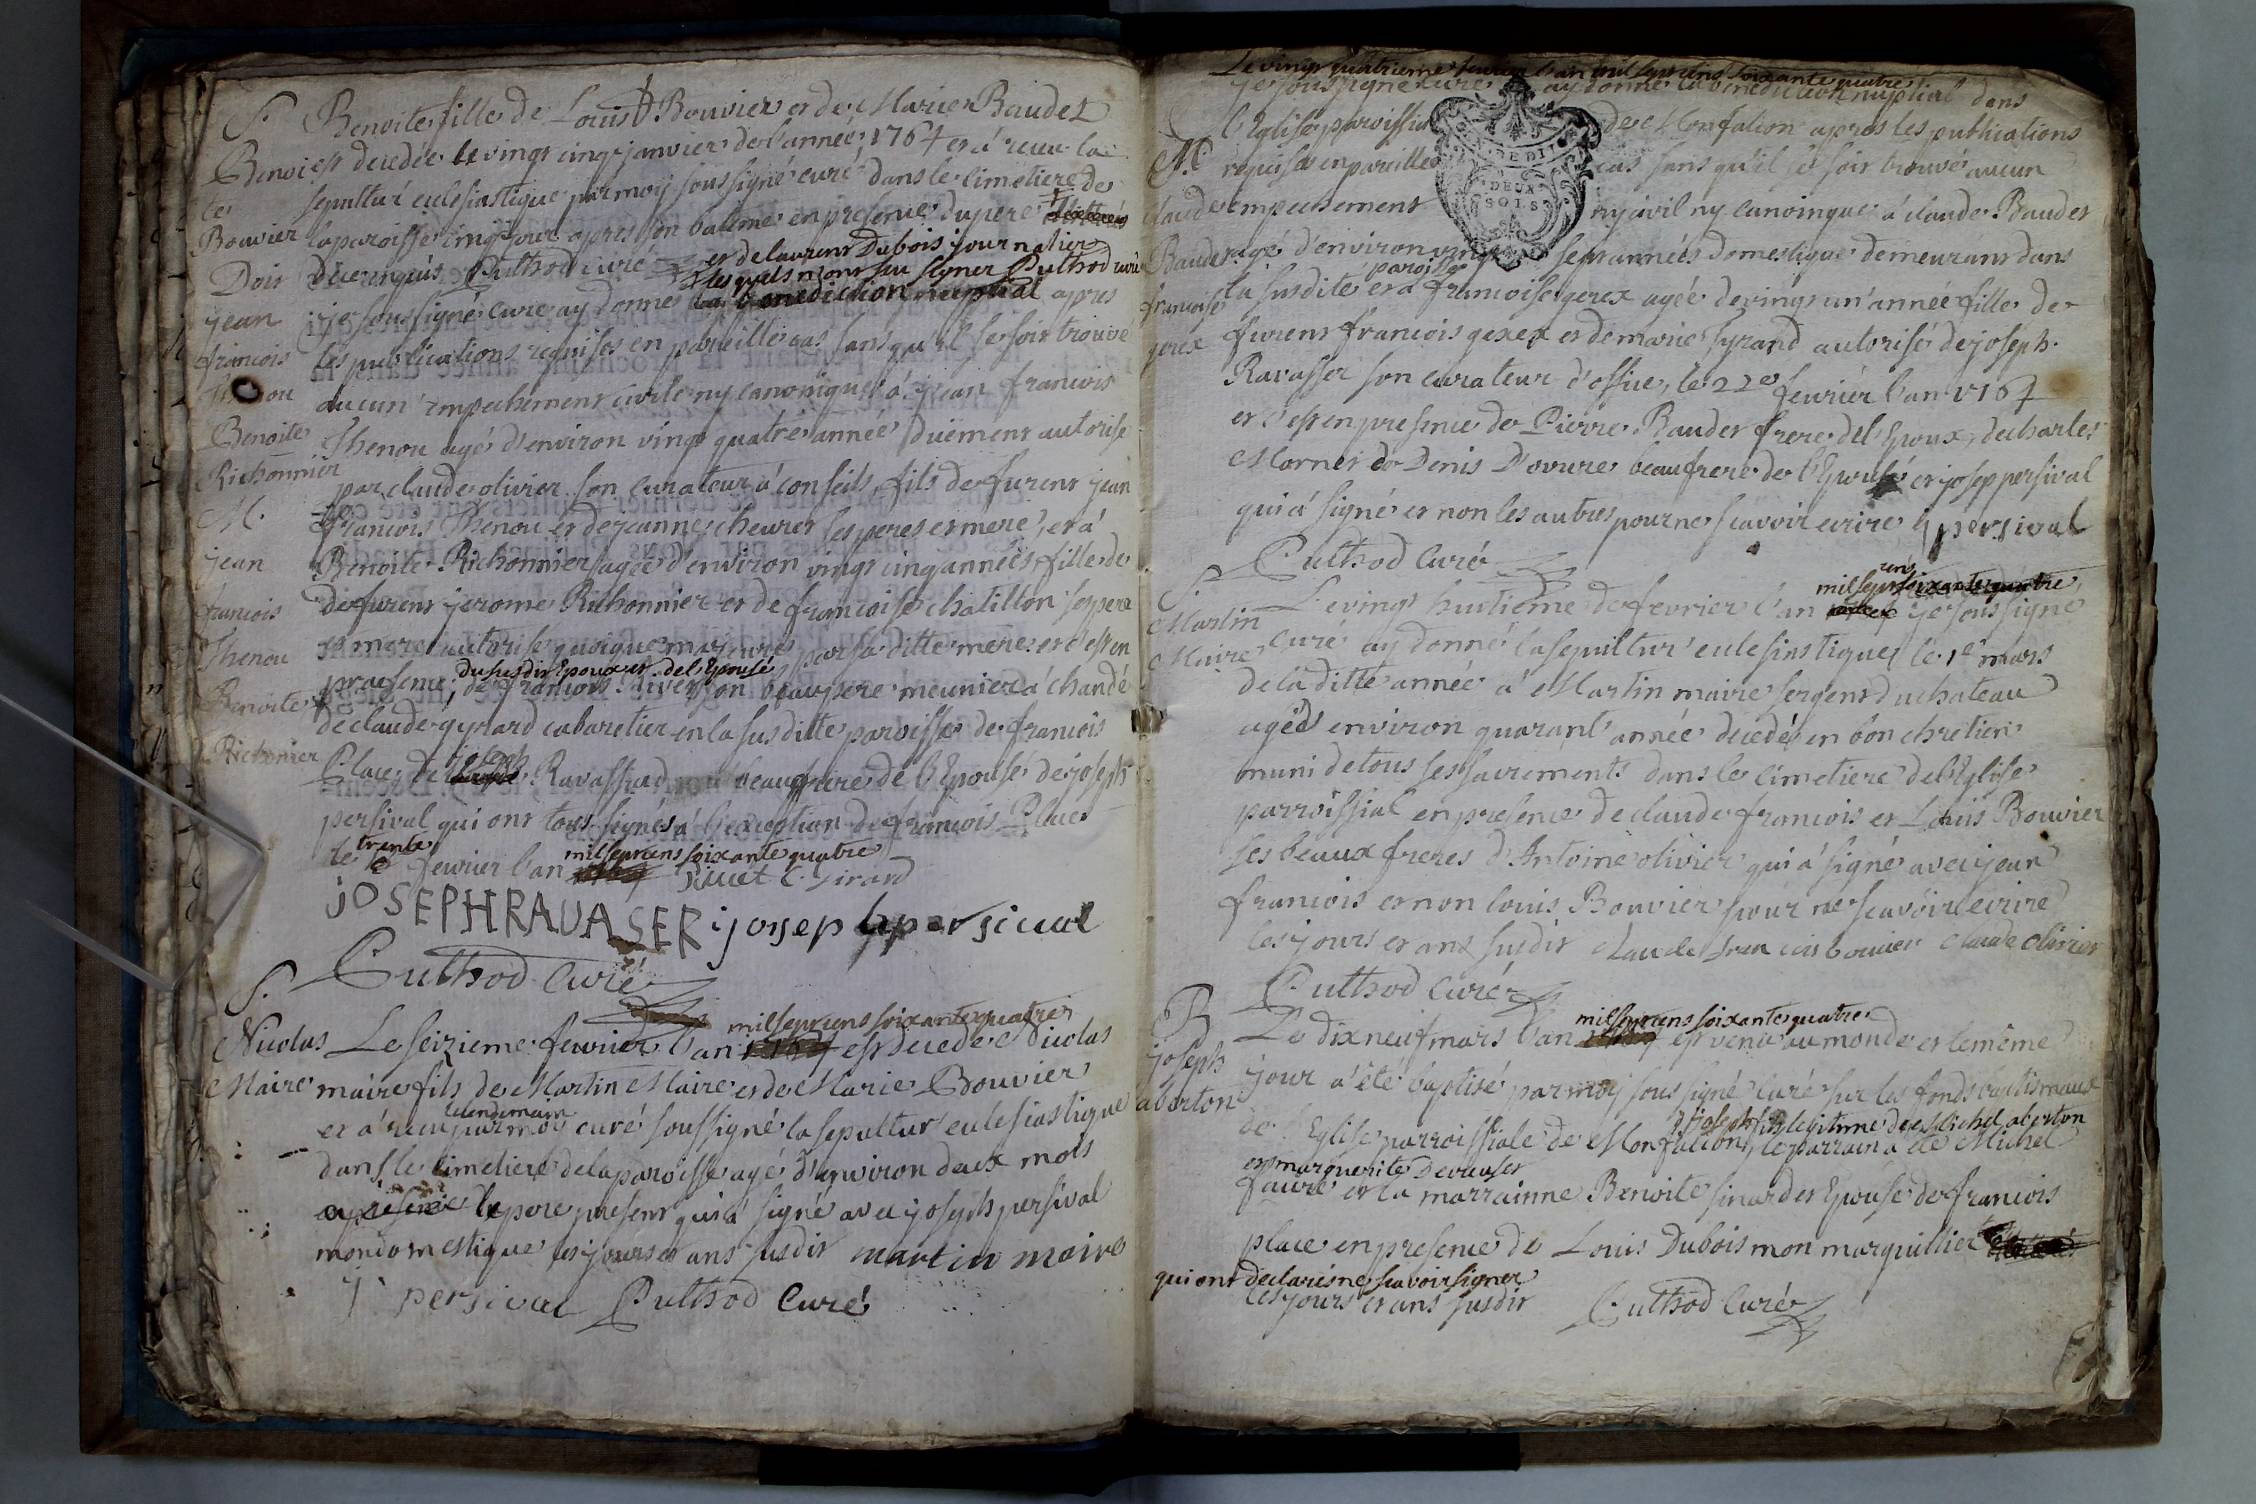 S. Benoite fille de Louis Bouvier et de Marie Baudet
Benoi est decedée le vingt cinq janvier de l'année 1764 et á recu la
te sepultur eclesiastique par moy soussigné curé dans le cimetiere de
Bouvier la paroisse cinq jour apres son batême en presence du pere
et de laurent Dubois journalier
Dois Puthod curé lesquels n'ont scu signer Puthod curé
jean je soussigné curé ay donné la benediction nuptial apres
francois les publications requises en pareille cas sans qu'il se soit trouvé
Thenou aucun empechement civile ny canonique á jean francois
Benoite Thenou agé d'environ vingt quatre année duëment autorisé
Richonnier
par claude olivier son curateur á conseils, fils de furent jean
M. francois Thenou et de jeanne cheurer ses pere et mere, et á
jean Benoite Richonnier agée d'environ vingt cinq années fille de
francois defurent jerome Richonnier et de francoise chatillon ses pere
Thenou et mere autorise quoique majeure par sa ditte mere et c'est en
du susdit Epoux et de l'Epousé
praesence de francois rivet son beaupere meunier á chandé
Benoite
de claude gyrard cabaretier en la sus ditte paroisse de francois
Richonier Place de joseph Ravassard beaufrere de l'Epousé de joseph
persival qui ont tous signés á l'exception de francois Place
trente milseptcens soixante quatre
le fevrier l'an Rivet C. Girard
jOSEPHRAVASER ijoseph persival
Puthod Curé
S.
milseptcens soixante quatre
Nicolas Le seizieme fevrier l'an 1764 est decede Nicolas
Maire maire fils de Martin Maire et de Marie Bouvier
lendemain
et á recu par moy curé soussigné la sepultur eclesiastique
dans le cimetiere de la paroisse agé d'environ deux mois
le pere present qui á signé avec joseph persival
mon domestique les jours et ans susdit martin maire
j persival Puthod Curé
Le vingt quatrieme fevrier l'an mil septcens soixante quatre
je soussigné curé ay donné la benediction nuptial dans
l'Eglise paroissial de Monfalcon apres les publications
M. requises en pareille cas sans qu'il se soit trouvé aucun
claude empechement ny civil ny canonique á claude Baudet
Baudet agé d'environ vingt sept années domestique demeurant dans
paroisse
francoise la susdite et á francoise gerex agée de vingt un année fille de
gerex furent francois gerex et de marie syrand autorisé de joseph
Ravasser son curateur d'office, le 22e fevrier l'an 1764
et c'est en presence de Pierre Baudet frere de l'Epoux de charles
Mornet de Denis D'ovure beaufrere de l'Epousé et josep persival
qui á signé et non les autres pour ne scavoir ecrire j persival
Puthod Curé
S.
cens
milsept soixante quatre
Martin Le vingt huitieme de fevrier l'an je soussigné
Maire Curé ay donné la sepultur eclesiastique le 1e mars
de la ditte année á Martin maire sergent du chateau
agé d'environ quarant année decedé en bon chretien
muni de tous ses sacrements dans le cimetiere de l'Eglise
parroissial en presence de claude francois et Louis Bouvier
ses beaux freres d'Antoine olivier qui á signé avec jean
francois et non louis Bouvier pour ne scavoir ecrire
les jours et ans susdit claude fran cois bouvier claude olivier
Puthod Curé
B
milseptcens soixante quatre
Le dix neuf mars l'an est venu au monde et le même
joseph jour á été baptisé par moy soussigné curé sur les fonds baptismaux
aberton joseph fils legitime de Michel aberton
de l'Eglise parroissiale de Monfalcon, le parrain á été Michel
et marguerite
faure et la marrainne Benoite sinardet Epouse de francois
place en presence de Louis Dubois mon marguillier
qui ont declarés ne scavoir signer
les jours et ans susdit Puthod Curé